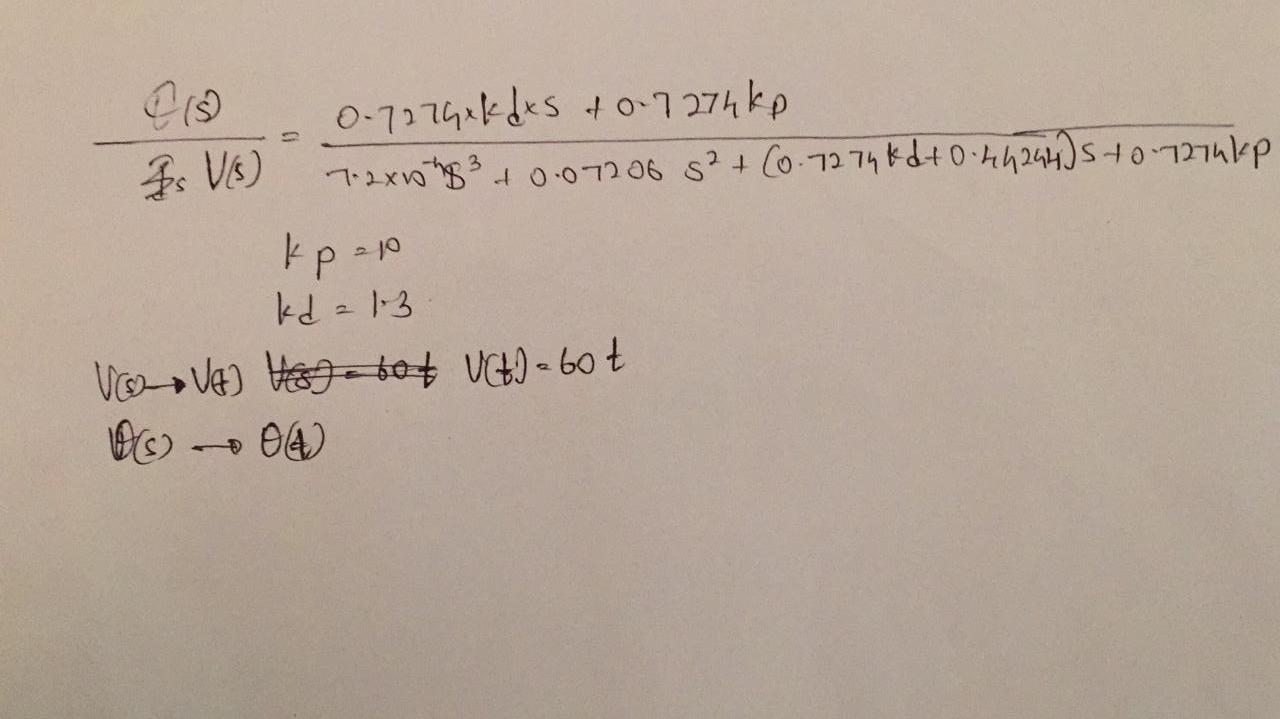 θ(s) / V(s) = 0.7274×kd×s + 0.7274kp / 7.2×10⁻⁴s³ + 0.07206 s² + (0.7274kd+0.44244)s+0.7274kp
kp = 10
kd = 1.3
V(s)→V(t) V(s) = 60t V(t) = 60t
θ(s) → θ(t)